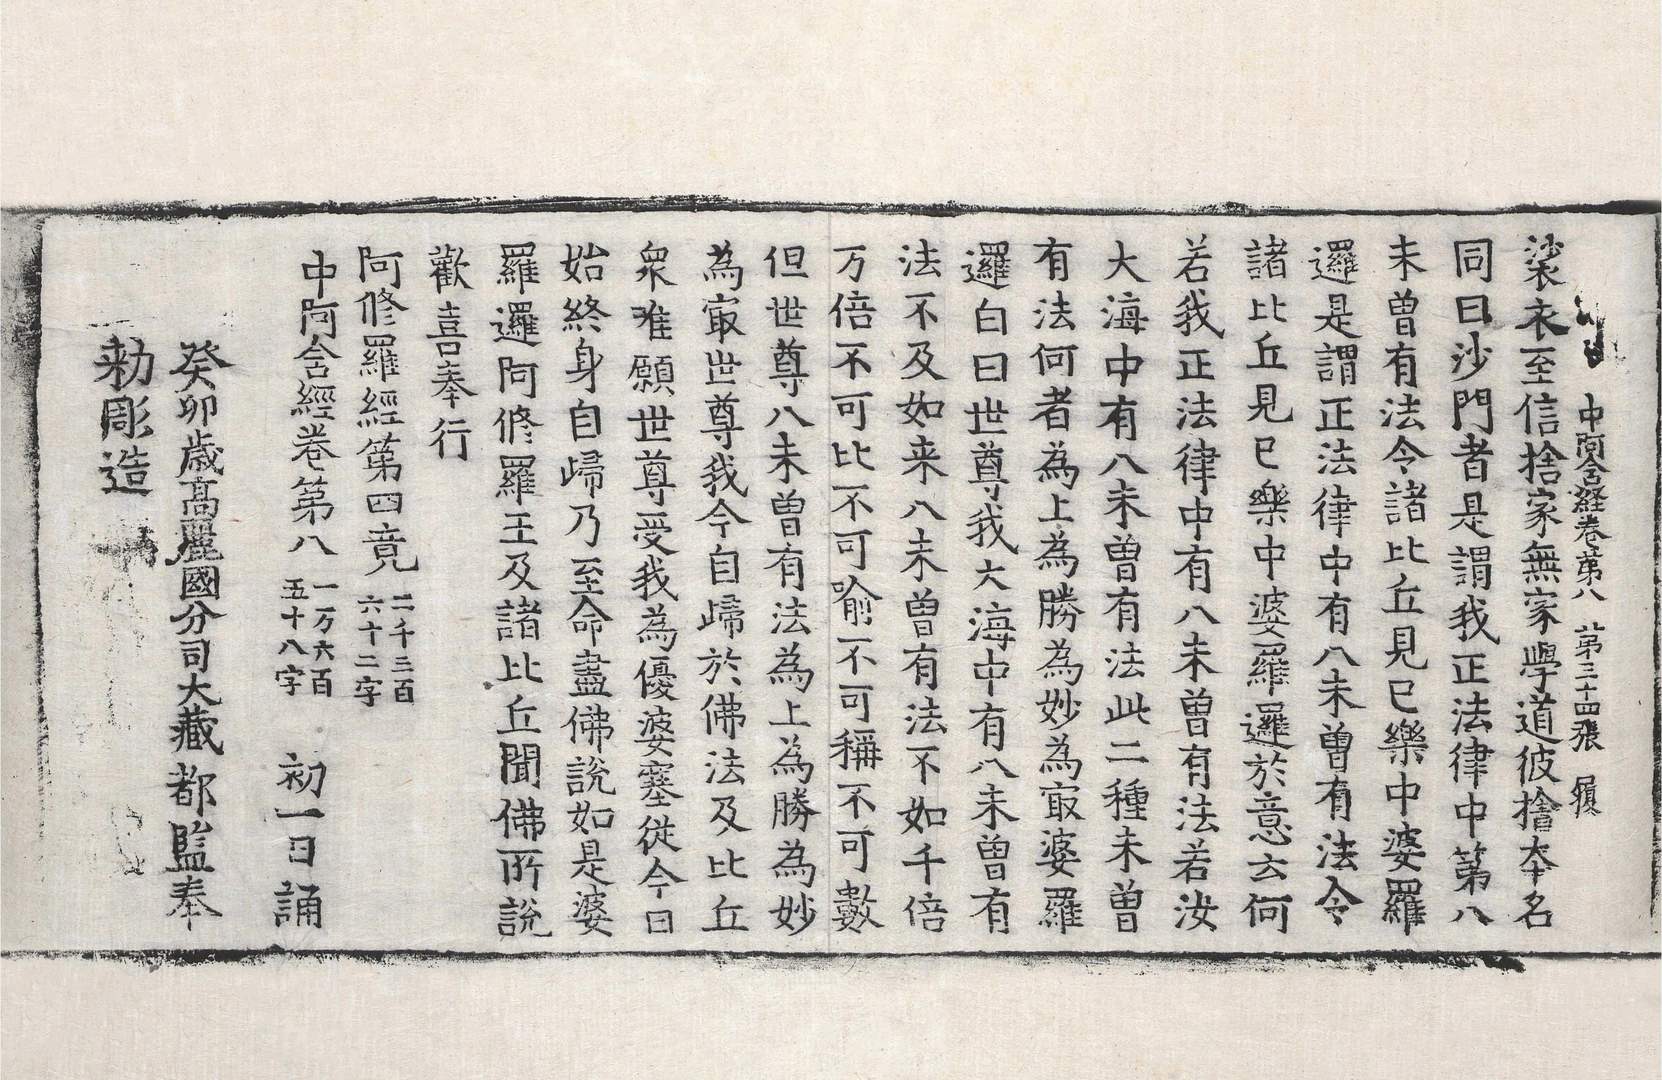 中阿含経卷第八 第三十四張 履
袈衣至信捨家無家學道彼捨本名
同曰沙門者是謂我正法律中第八
未曾有法令諸比丘見已樂中婆羅
邏是謂正法律中有八未曾有法令
諸比丘見已樂中婆羅邏於意云何
若我正法律中有八未曾有法若汝
大海中有八未曾有法此二種未曾
有法何者為上為勝為妙為㝡婆羅
邏白曰世尊我大海中有八未曾有
法不及如来八未曾有法不如千倍
万倍不可比不可喻不可稱不可數
但世尊八未曾有法為上為勝為妙
為㝡世尊我今自歸於佛法及比丘
衆唯願世尊受我為優婆塞従今日
始終身自歸乃至命盡佛說如是婆
羅邏阿修羅王及諸比丘聞佛所說
歡喜奉行
阿修羅經第四竟 二千三百六十二字
中阿含經卷第八 一万六百五十八字 初一日誦
癸卯歲高麗國分司大藏都監奉
勅彫造